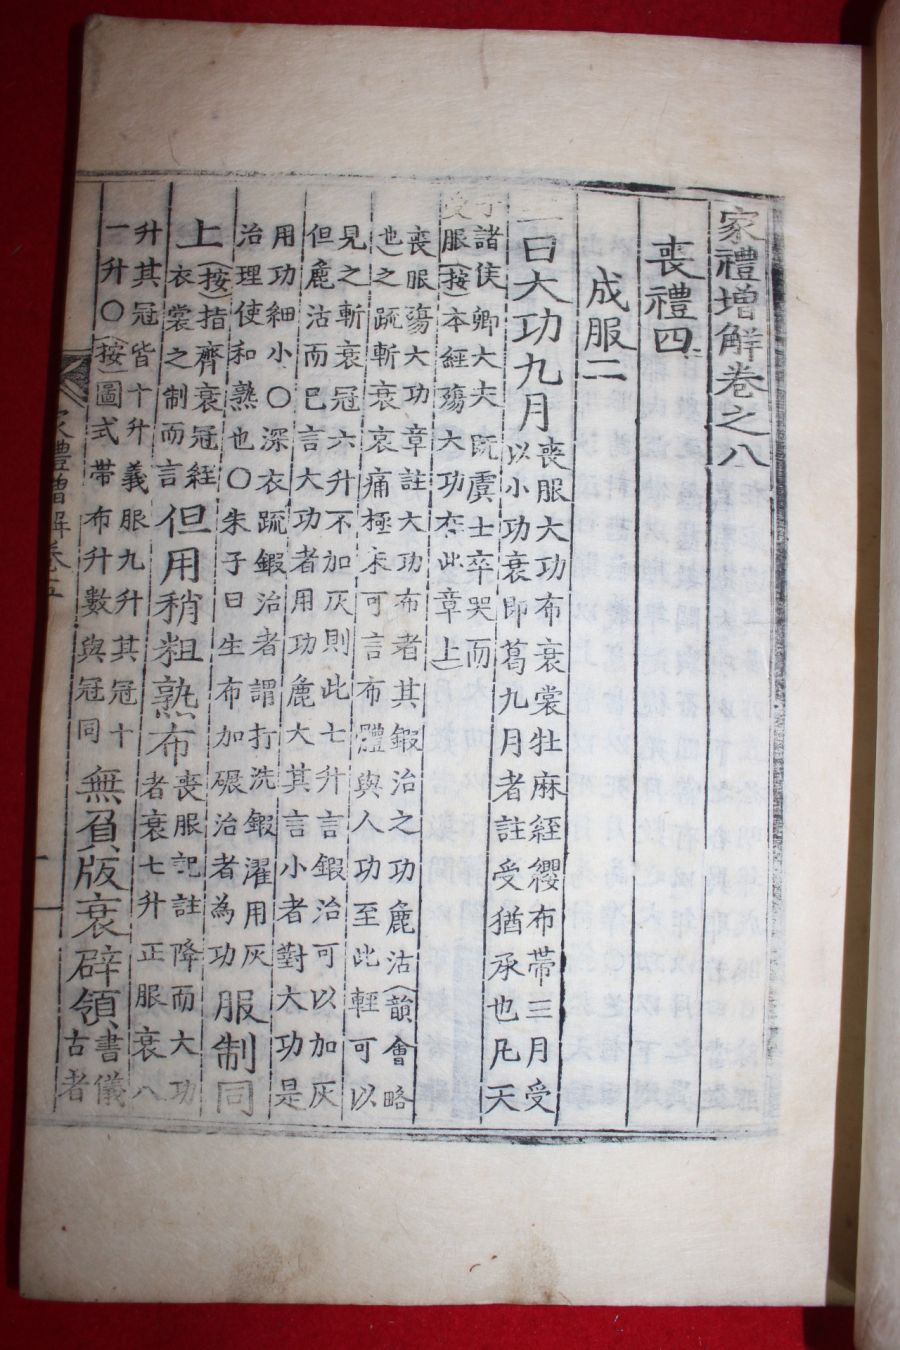 家禮增解卷之八
喪禮四
成服二
三曰大功九月
喪服大功布衰裳牡麻絰纓布帶三月受
以小功衰即葛九月者註受猶承也凡天
子諸侯卿大夫既虞士卒哭而
受服(按)本經殤大功在此章上
喪服殤大功章註大功布者其鍜治之功麁沽(韻會略
也)之䟽斬衰哀痛極未可言布體與人功至此輕可以
見之斬衰冠六升不加灰則此七升言鍜治可以加灰
但麁沽而已言大功者用功麁大其言小者對大功是
用功細小○深衣䟽鍜治者謂打洗鍜濯用灰
治理使和熟也○朱子曰生布加碾治者為功
服制同
上
(按)指齊衰冠絰
衣裳之制而言
但用稍粗熟布
喪服記註降而大功
者衰七升正服衰八
升其冠皆十升義服九升其冠十
一升○(按)圖式帶布升數與冠同
無負版衰辟領
書儀
古者
家禮增解卷五